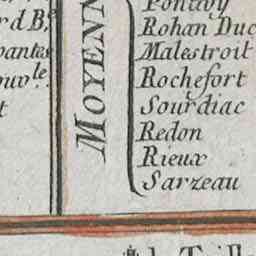 rd B.e
vantes
ouv.le
t
MOYENN
Pontivy
Rohan Duc
Malestroit
Rochefort
Sourdiac
Redon
Rieux
Sarzeau